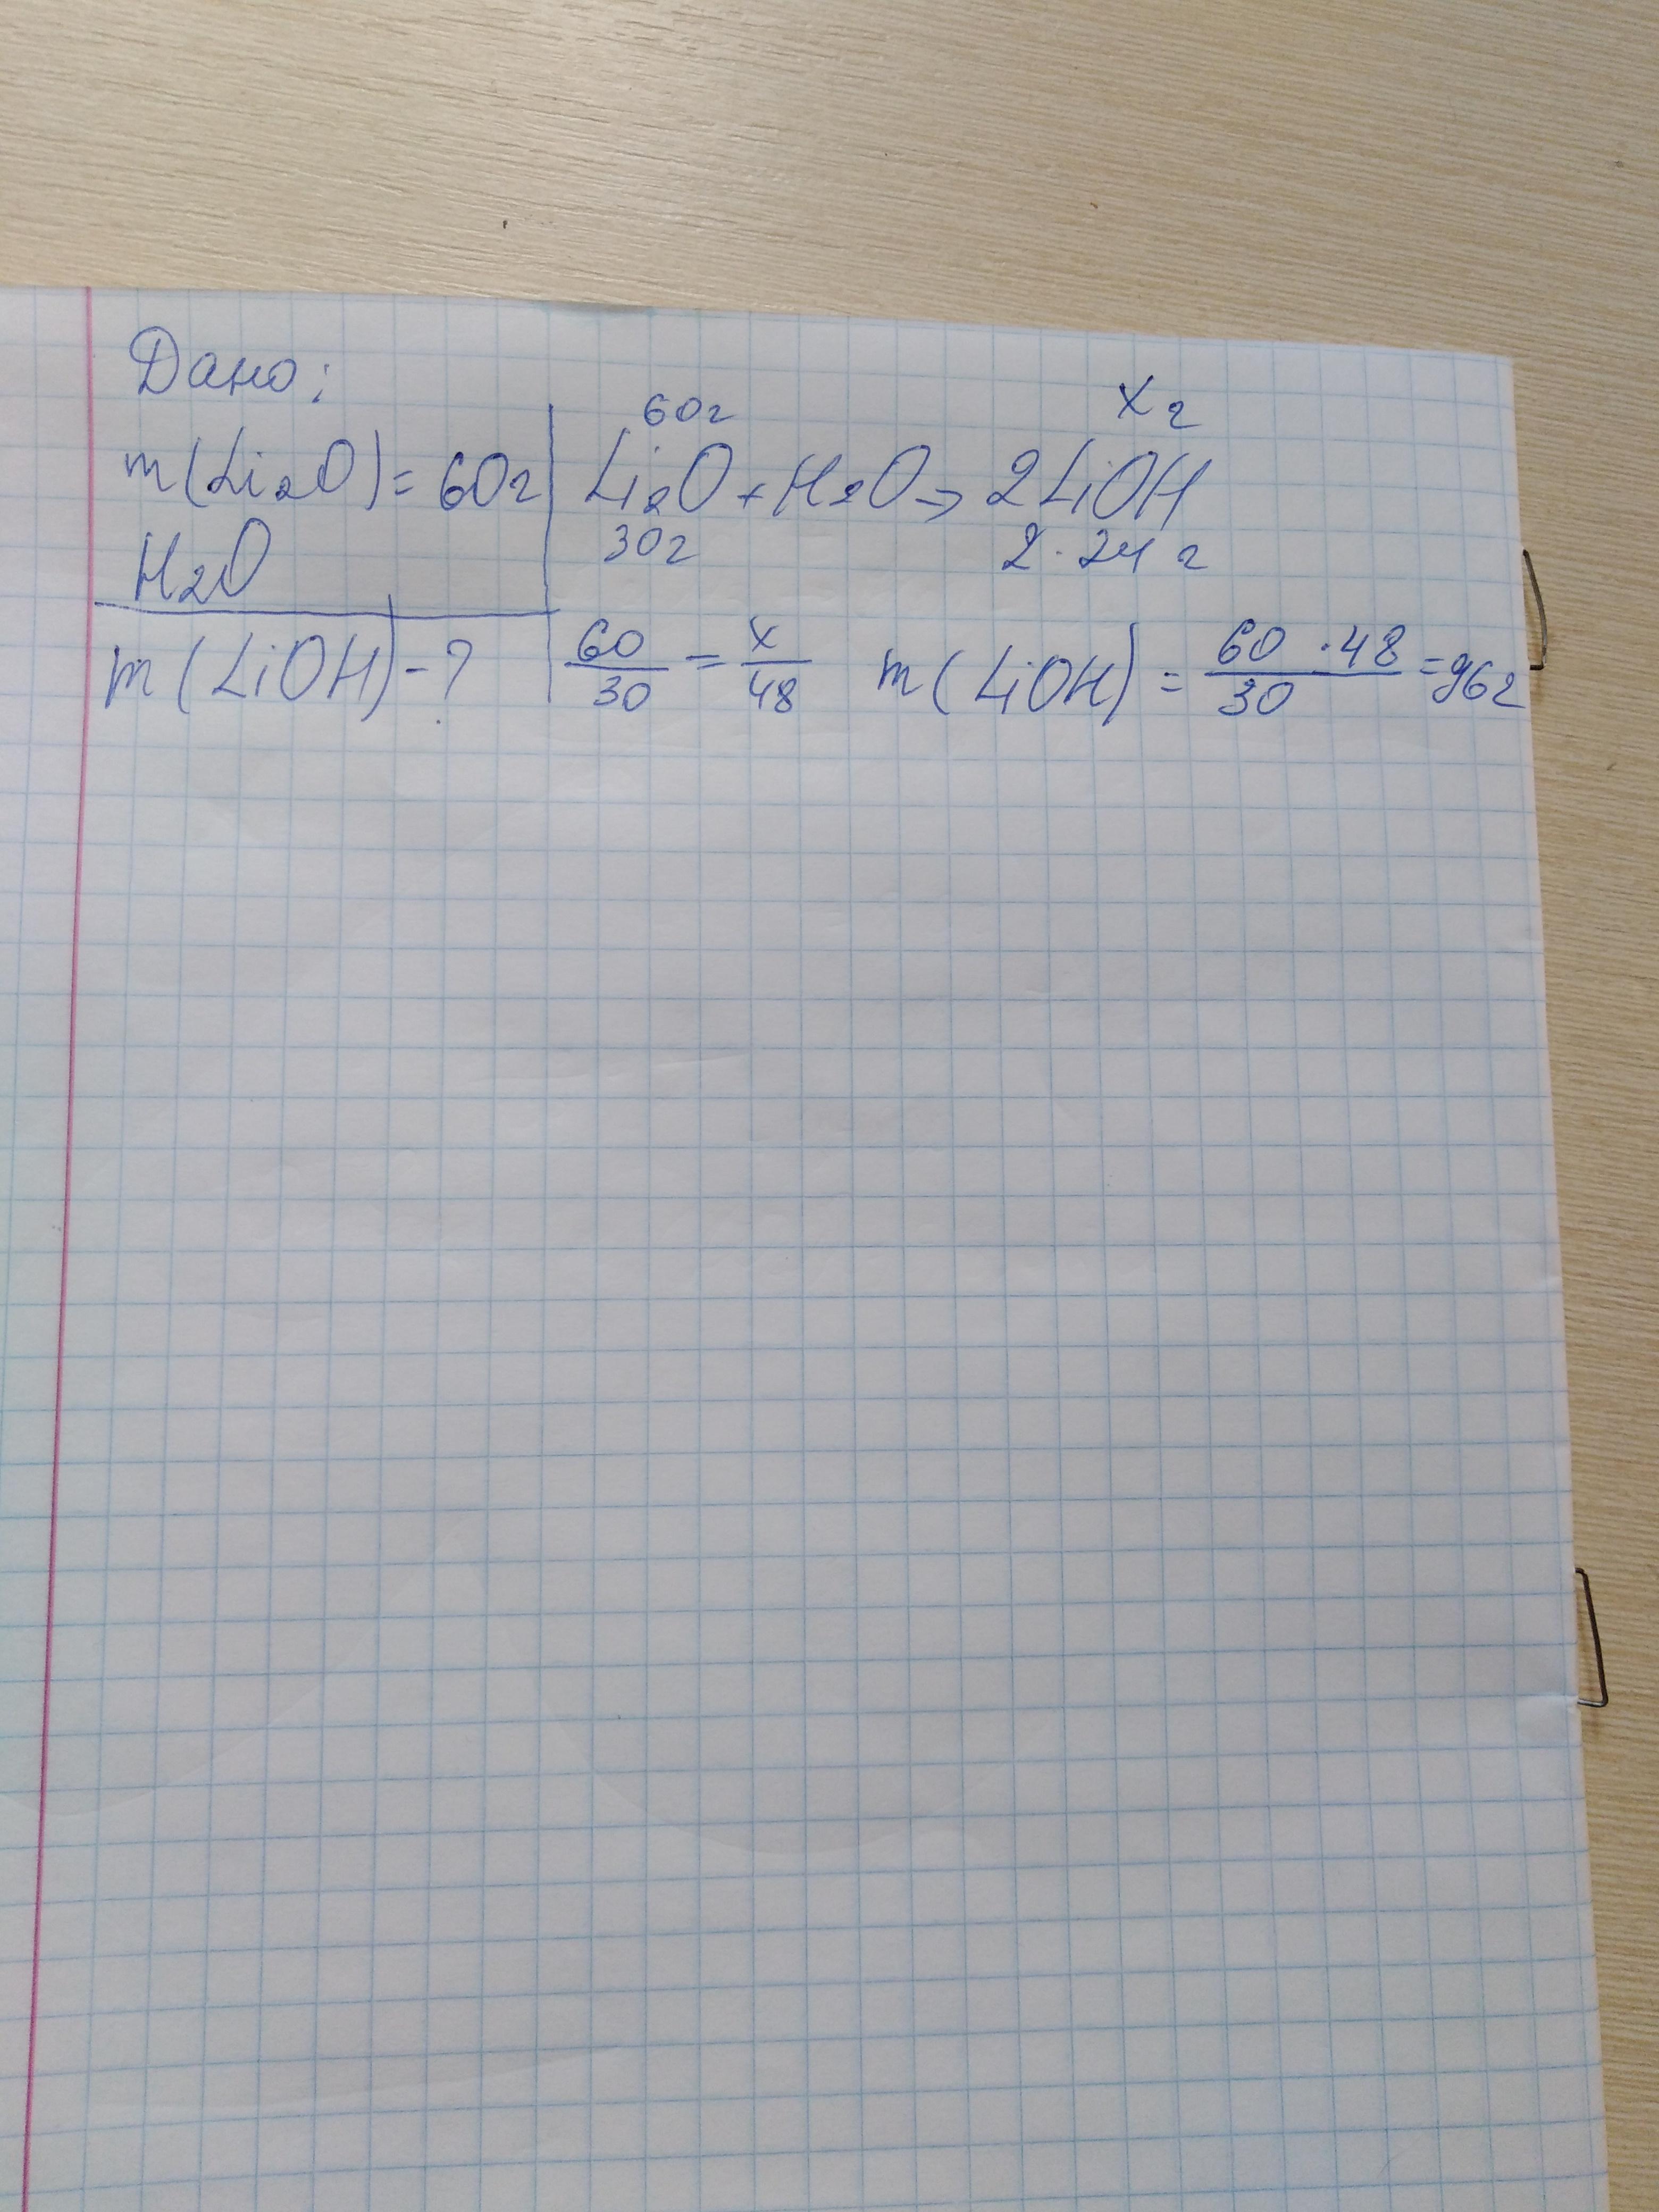 Дано:
m(Li₂O) = 60г
H₂O
m(LiOH) - ?
60г x г
Li₂O + H₂O → 2LiOH
30г 2 · 24 г
60/30 = x/48 m(LiOH) = 60 · 48/30 = 96г